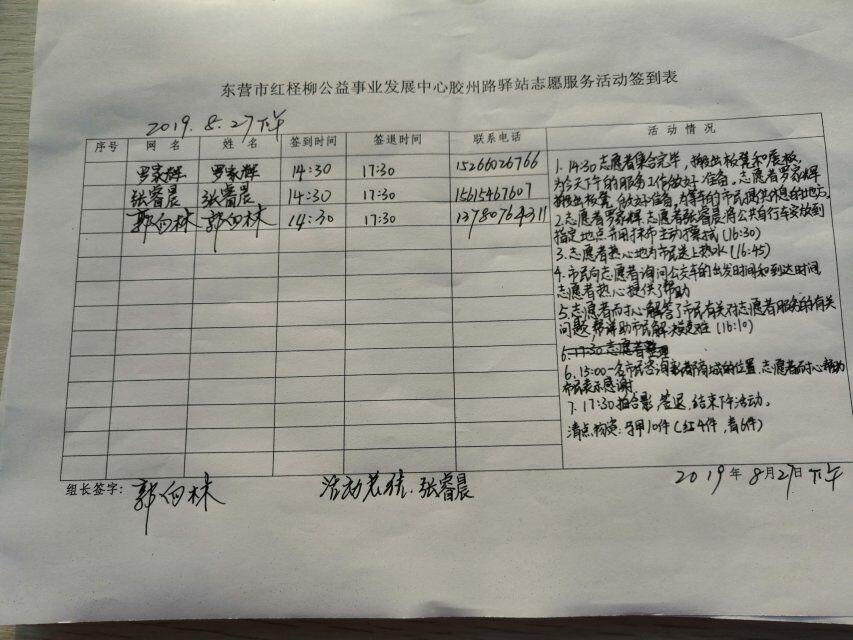 东营市红柽柳公益事业发展中心胶州路驿站志愿服务活动签到表
2019.8.27下午
序号 网名 姓名 签到时间 签退时间 联系电话 活动情况
罗家辉 罗家辉 14:30 17:30 15266026766
张睿晨 张睿晨 14:30 17:30 15615467607
郭向林 郭向林 14:30 17:30 13780764311
1. 14:30志愿者集合完毕，搬出板凳和展板，
为今天下午的服务工作做好准备。志愿者罗家辉
搬出板凳，做好准备，为等待的市民提供休息的地点。
2.志愿者罗家辉 志愿者张睿晨将公共自行车安放到
指定地点并用抹布主动擦拭(16:30)
3.志愿者热心地为市民送上热水(16:45)
4.市民向志愿者询问公交车的出发时间和到达时间
志愿者热心提供了帮助
5.志愿者耐心解答了市民有关对志愿者服务的有关
问题 帮助市民解决疑难(16:10)
6.17:30志愿者整理
6.15:00一名市民咨询 商城的位置，志愿者耐心帮助
市民表示感谢
7. 17:30拍合影，签退，结束下午活动。
清点物资：马甲10件(红4件，青6件)
组长签字：郭向林 活动总结：张睿晨 2019年8月27日下午